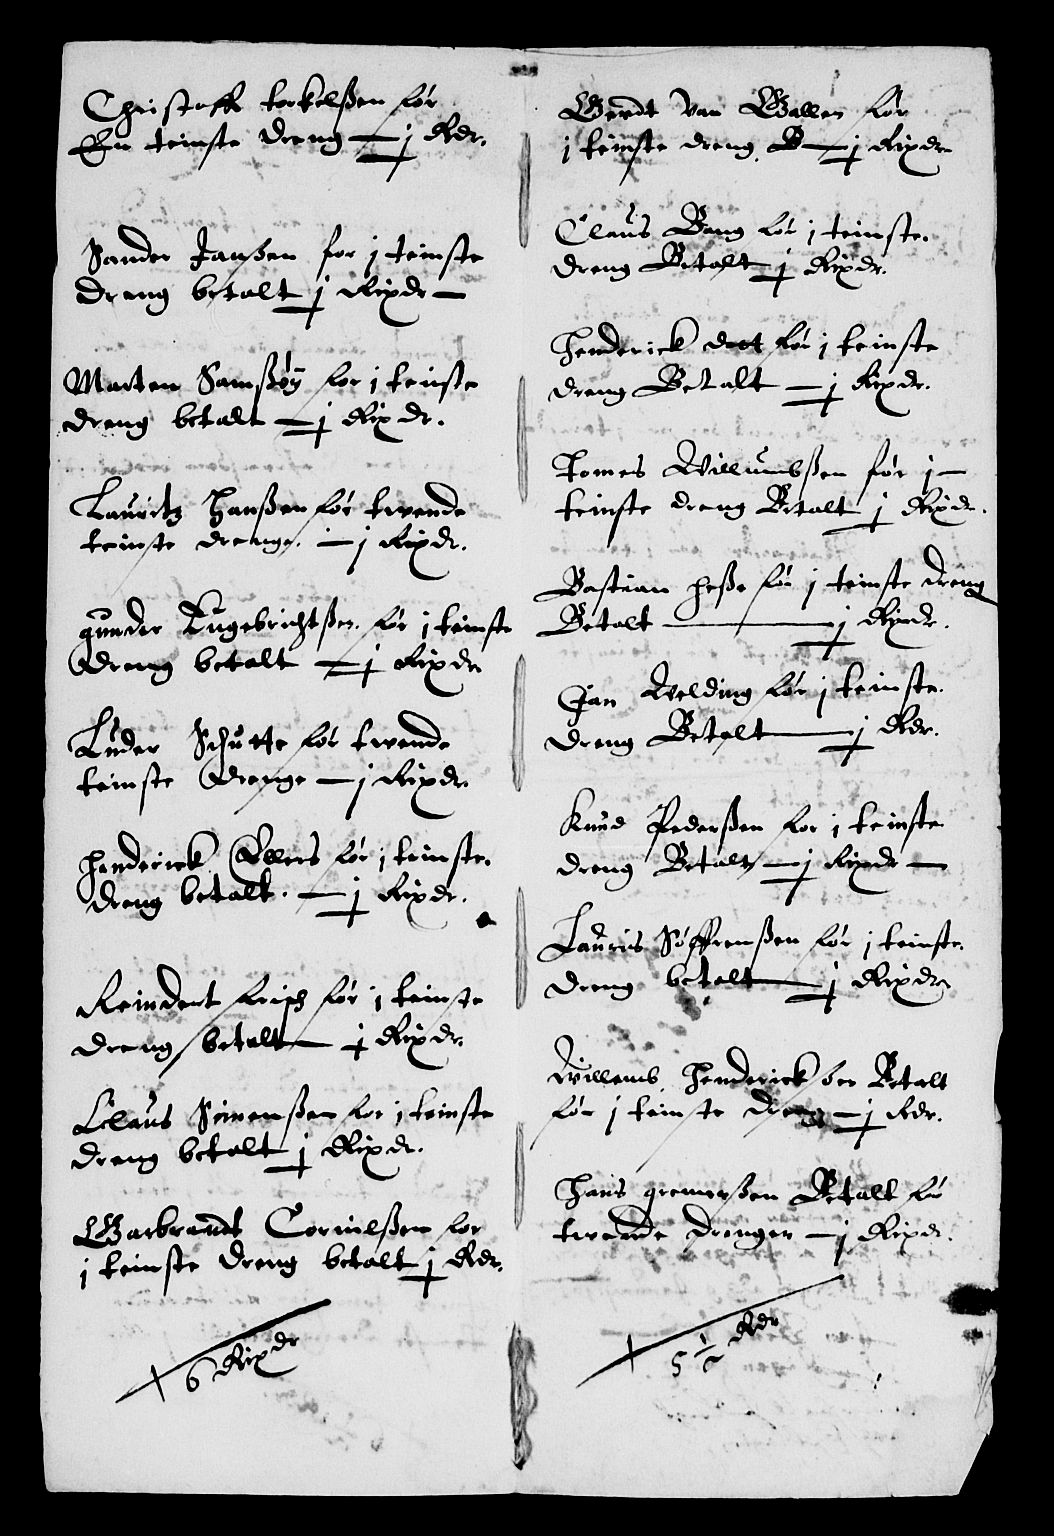 Christoffr torkelßen før
En teinste dreng — j Rdr.
Sander Janßen for j teinste
dreng betalt j Rixdr —
Marten Samßøÿ for j teinste
dreng betalt — j Rixdr.
Lauritz Hanßen før twende
teinste drenge. — j Rixdr.
gunder Engebrichtßen. før j teinste
dreng betalt — j Rixdr
Luder Schutte før twende
teinste drenge — j Rixdr.
Henderick Ellers før j teinste.
dreng betalt. — j Rixdr.
Reindert Friss før j teinste
dreng betalt — j Rixdr.
Claus Simenßen for j teinste
dreng betalt j Rixdr.
Garbrandt Cornelßen for
j teinste dreng betalt j Rdr.
6 Rixdr
Gerdt van Wallen før
j teinste dreng. B — j Rixdr
Claus Bang før j teinste.
dreng Betalt j Rixdr.
Henderick dret før j teinste
dreng Betalt — j Rixdr.
Tomes Willumbßen før j —
teinste dreng Betalt j Rixdr.
Bastian Heße før j teinste dreng
Betalt — j Rixdr.
Jan Welding før j teinste.
dreng Betalt — j Rdr.
Knud Pederßen for j teinste
dreng Betalt — j Rixdr —
Lauris Søffrenßen før j teinste.
dreng betalt — j Rixdr
Willemb Henderick ßen Betalt
før j teinste dreng — j Rdr.
Hans gremerßen Betalt før
twende drenger — j Rixdr.
5 ½ Rdr